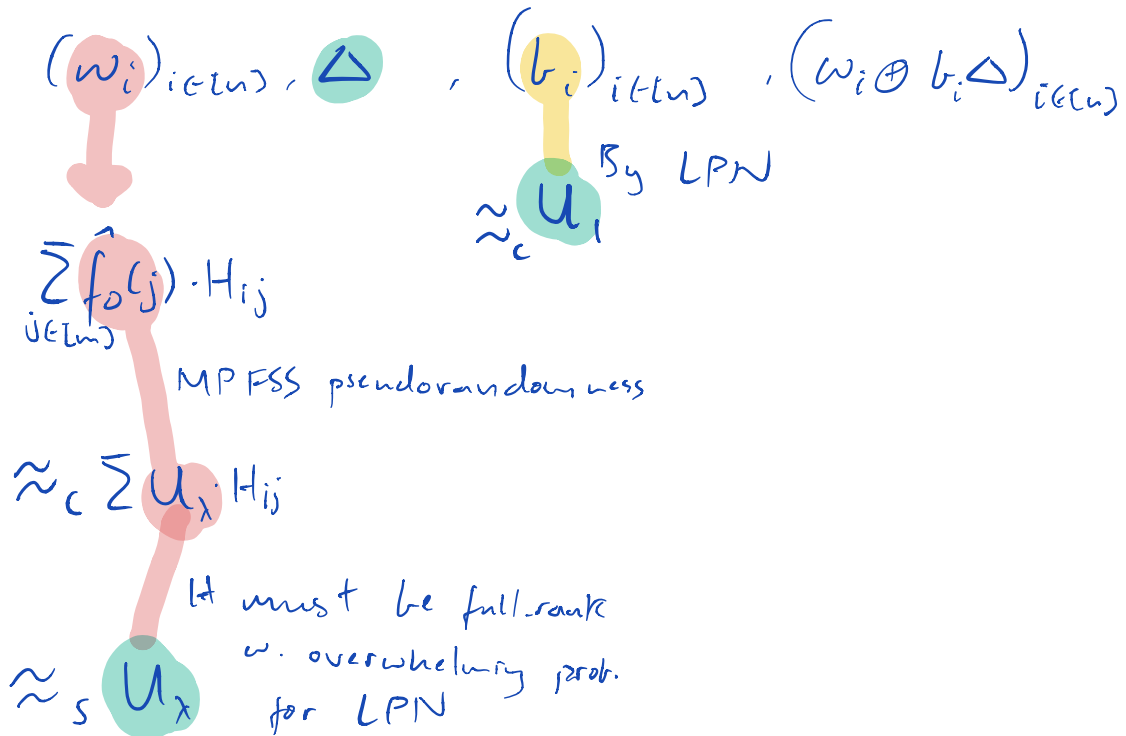 (w_i)_{i∈[n]}, Δ, (b_i)_{i∈[n]}, (w_i ⊕ b_i Δ)_{i∈[n]}
By LPN
≈_c U_1
Σ_{j∈[m]} f̂_0(j) · H_{ij}
MPFSS pseudorandomness
≈_c Σ U_λ · H_{ij}
H must be full-rank
w. overwhelming prob.
for LPN
≈_s U_λ